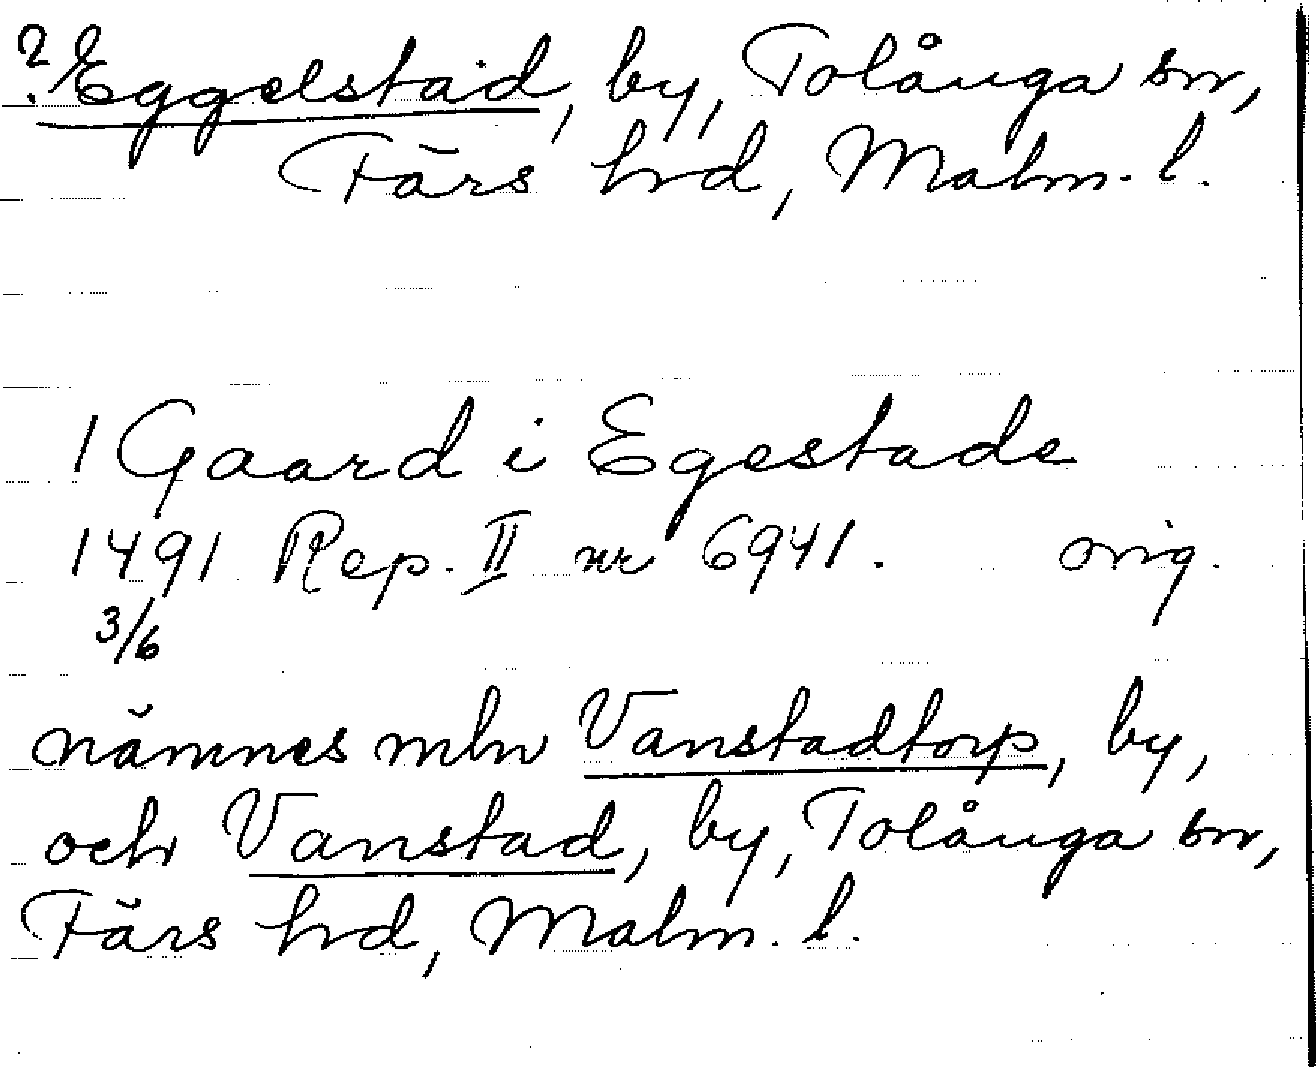 ? Eggelstad, by, Tolånga sn,
Färs hrd, Malm. l.
1 Gaard i Egestade
1491 Rep. II nr 6941. orig.
3/6
nämnes mln Vanstadtorp, by,
och Vanstad, by, Tolånga sn,
Färs hrd, Malm. l.